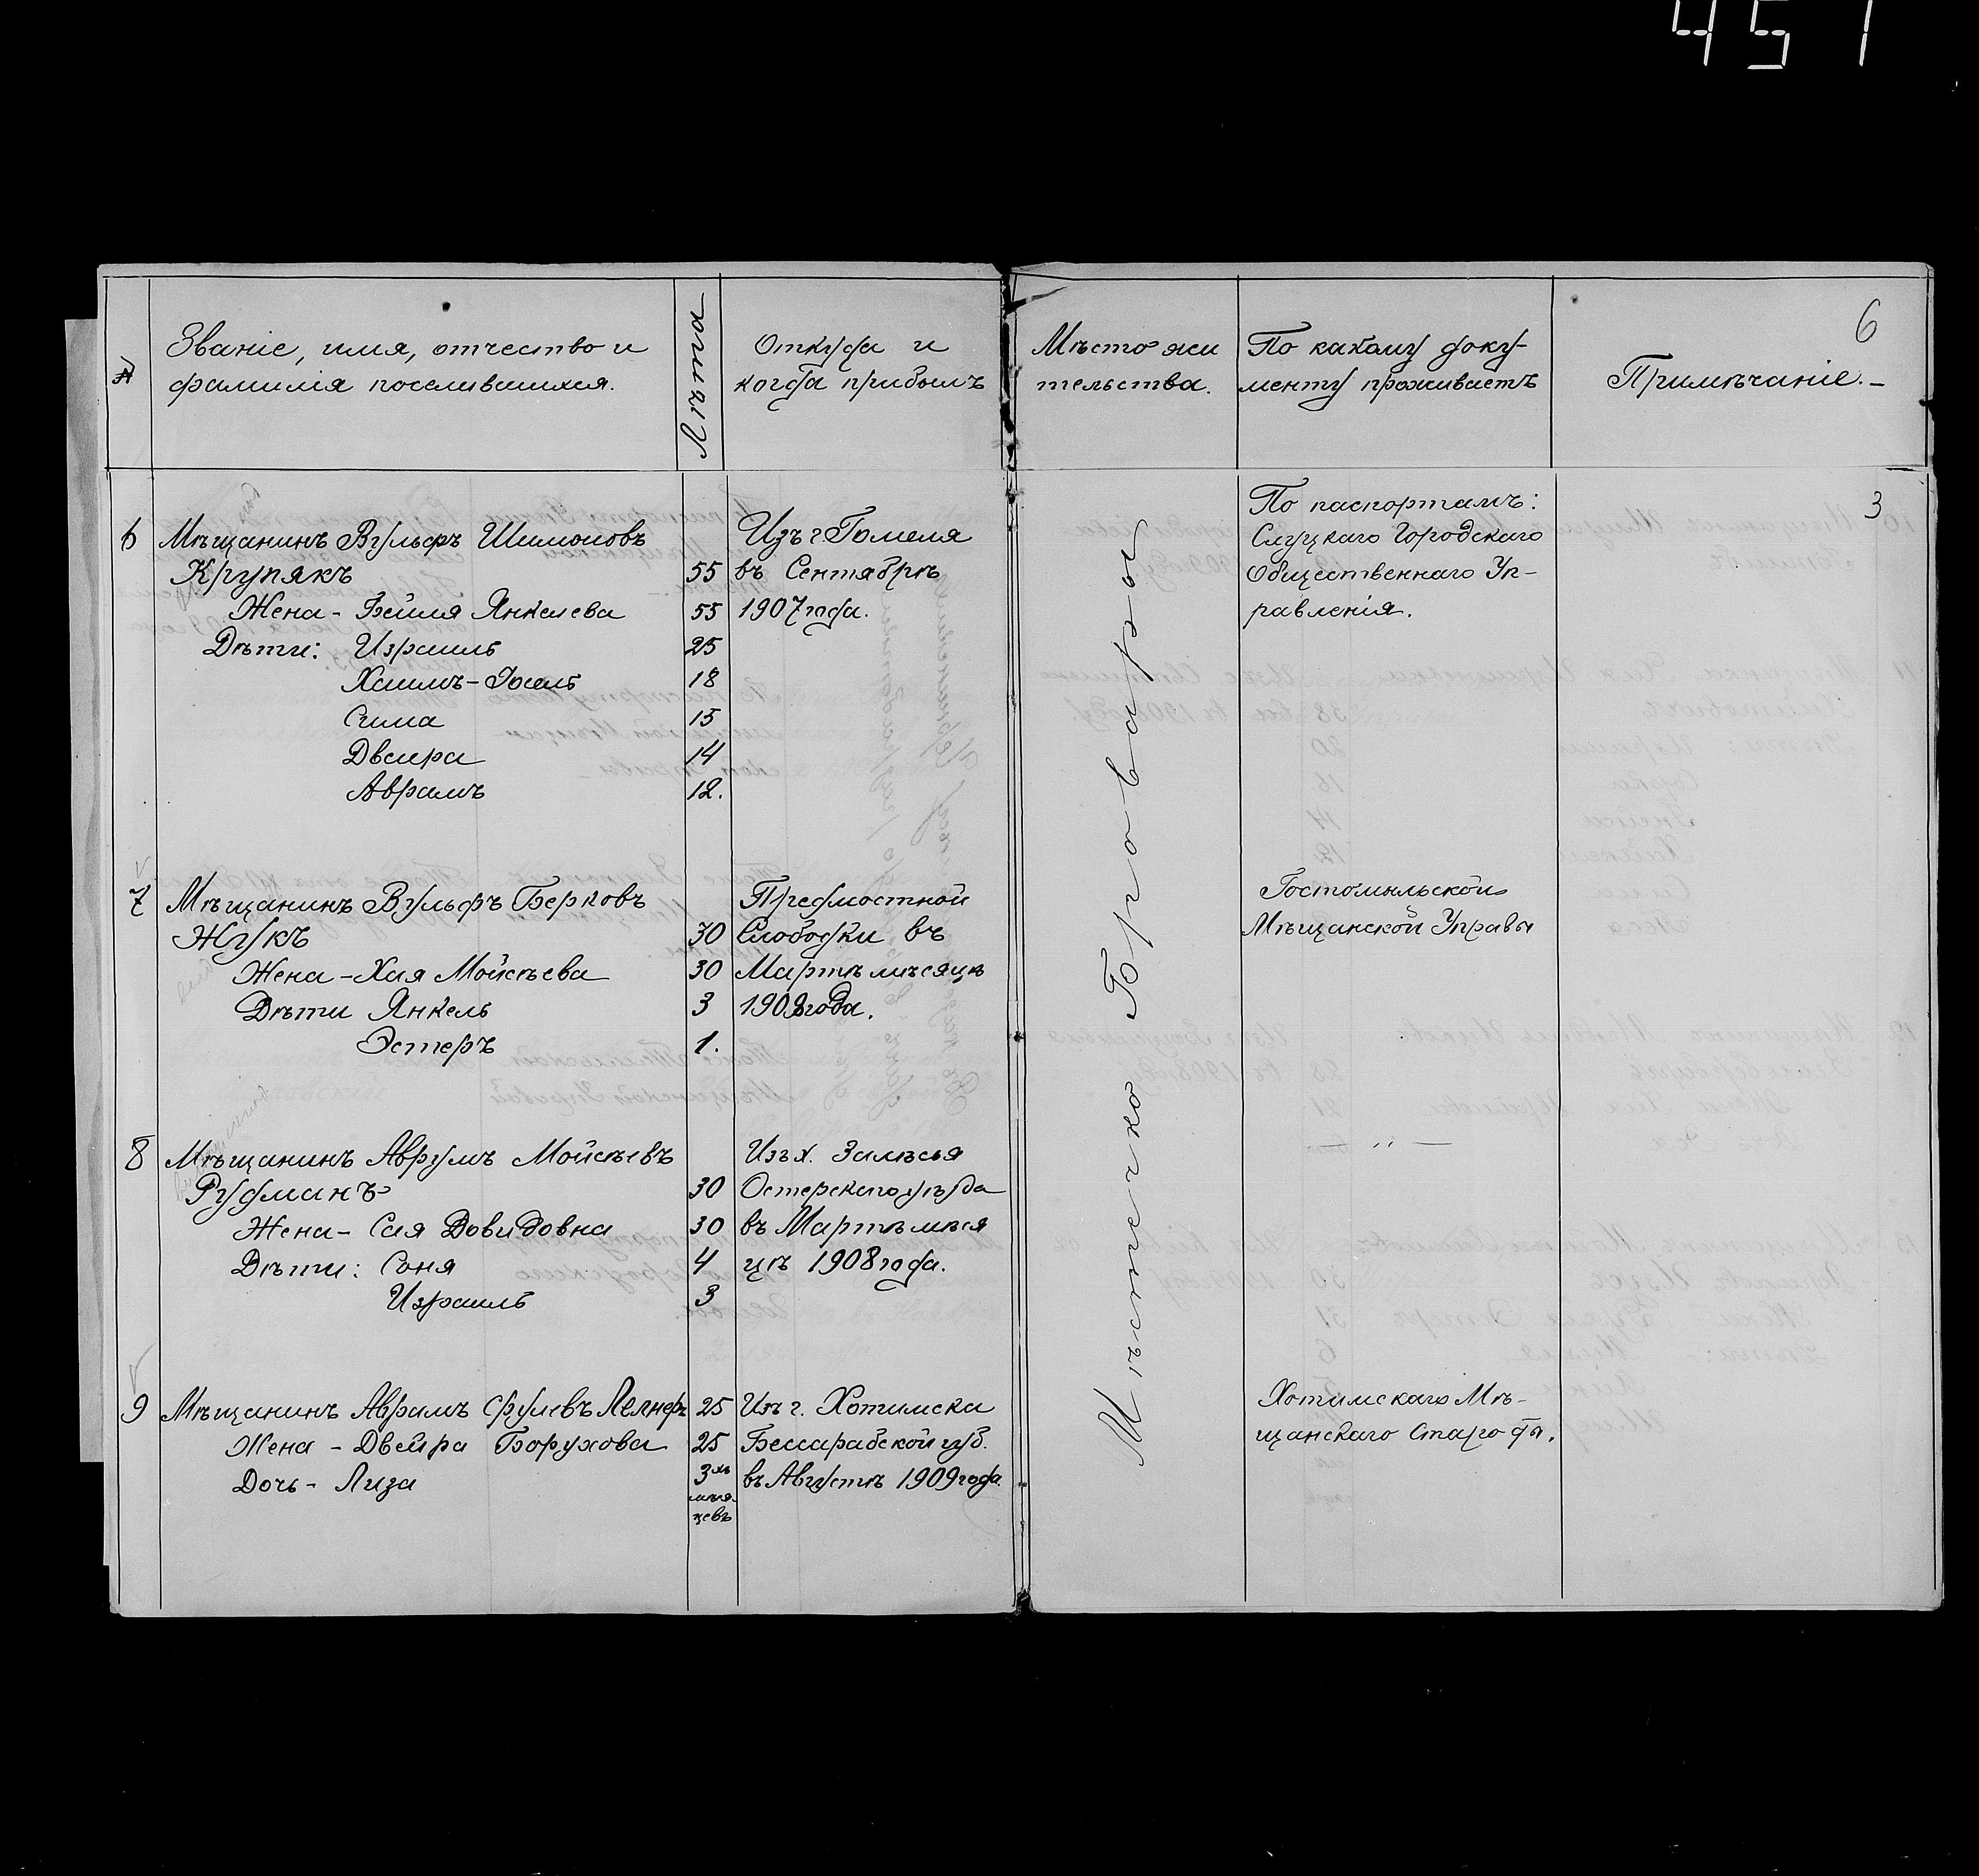 451
6
№
Званіе, имя, отчество и
фамилія поселившихся.
Лѣтъ
Откуда и
когда прибылъ
Мѣсто жи
тельства.
По какому доку-
менту проживаетъ
Примѣчаніе.-
3
6
Мѣщанинъ Вульфъ Шимоновъ
Крупякъ 55
Жена - Бейля Янкелева 55
Дѣти: Израиль 25
Хаимъ-Іосель 18
Сима 15
Двейра 14
Аврамъ 12.
Изъ г Гомеля
въ Сентябрѣ
1907 года.
По паспортамъ:
Слуцкаго Городского
Общественнаго Уп-
равленія.
7
Мѣщанинъ Вульфъ Берковъ
Жукъ 30
Жена - Хая Мойсѣева 30
Дѣти Янкель 3
Эстеръ 1.
Предмостной
Слободки въ
Мартѣ мѣсяцѣ
1908 года.
Гостомыльской
Мѣщанской Управы
8
Мѣщанинъ Аврумъ Мойсѣевъ
Рудманъ 30
Жена - Сая Довидовна 30
Дѣти: Соня 4
Израиль 3
Изъ х. Залѣсья
Остерскаго уѣзда
въ Мартѣ мѣся
цѣ 1908 года.
9
Мѣщанинъ Аврамъ Срулевъ Лелнеръ 25
Жена - Двейра Борухова 25
Дочь - Лиза 3хъ
мѣся
цевъ
Изъ г. Хотимска
Бессарабской губ.
въ Августѣ 1909 года.
Хотимскаго Мѣ-
щанскаго Старосты.
Мѣстечко Бровары